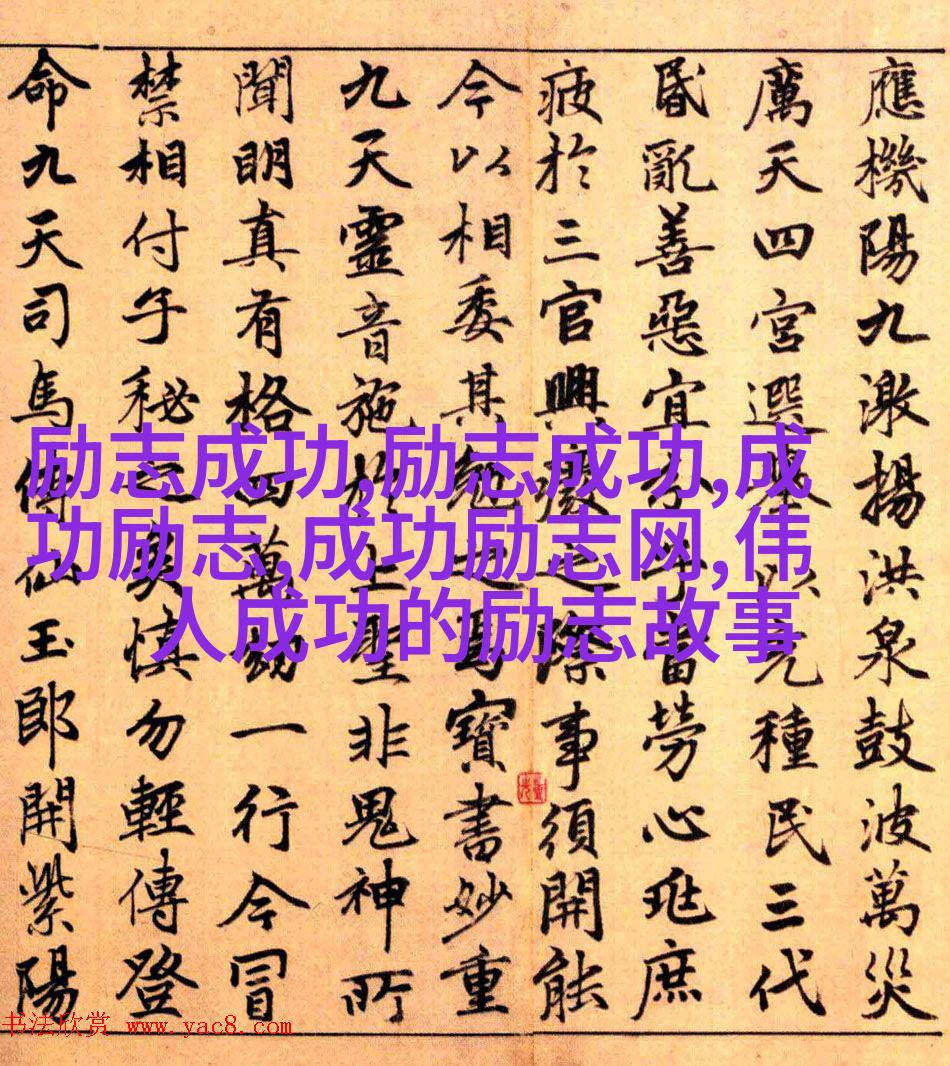 應機陽九激揚洪泉鼓波萬災
厲天四宮選種民三代
昏亂善惡宜分勞心兆庶
疲於三官興廢之際事須開能
今以相委其勉之焉寶書妙重
九天靈音施於上聖非鬼神所
聞明真有格四萬劫一行今冒
禁相付子秘之矣慎勿輕傳登
命九天司馬侍仙玉郎開紫陽
励志成功,励志成功,成
功励志,成功励志网,伟
人成功的励志故事
书法欣赏 www.yac8.com